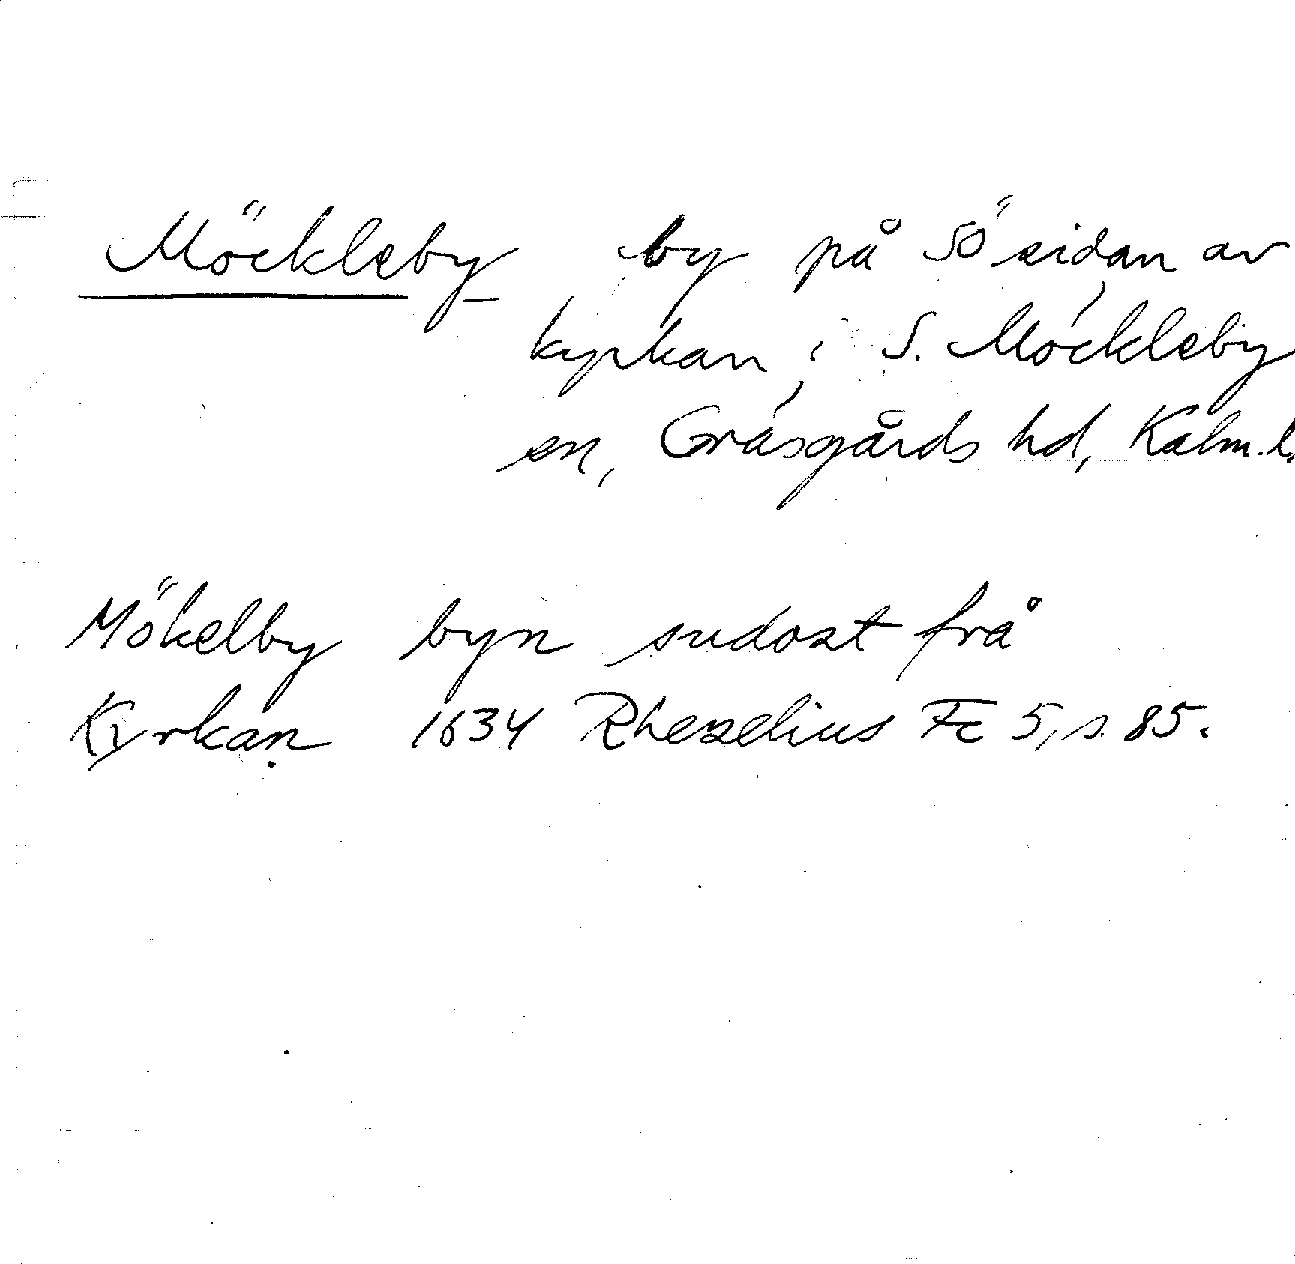 Möckleby by på SÖ sidan av
kyrkan i S. Möckleby
sn, Gräsgårds hd, Kalm. l.
Mökelby byn sudost frå
Kyrkan 1634 Rhezelius Fc 5, s. 85.